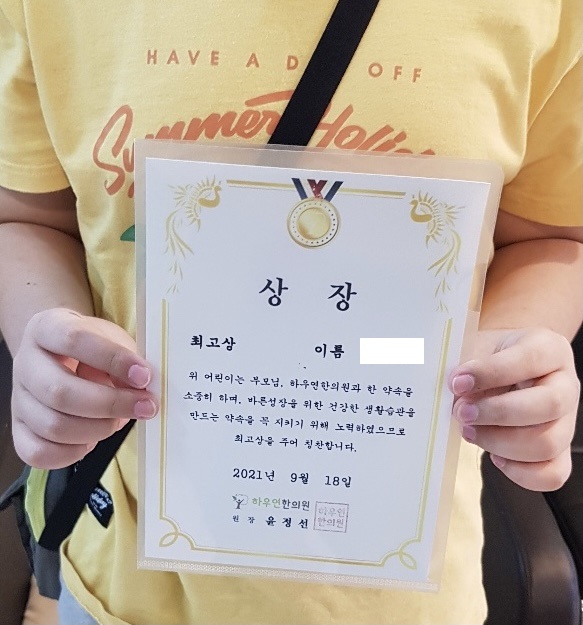 HAVE A D OFF
Summer Holi
상 장
최고상 이름
위 어린이는 부모님, 하우연한의원과 한 약속을
소중히 하며, 바른성장을 위한 건강한 생활습관을
만드는 약속을 꼭 지키기 위해 노력하였으므로
최고상을 주어 칭찬합니다.
2021년 9월 18일
하우연한의원
원 장 윤정선
하우연
한의원